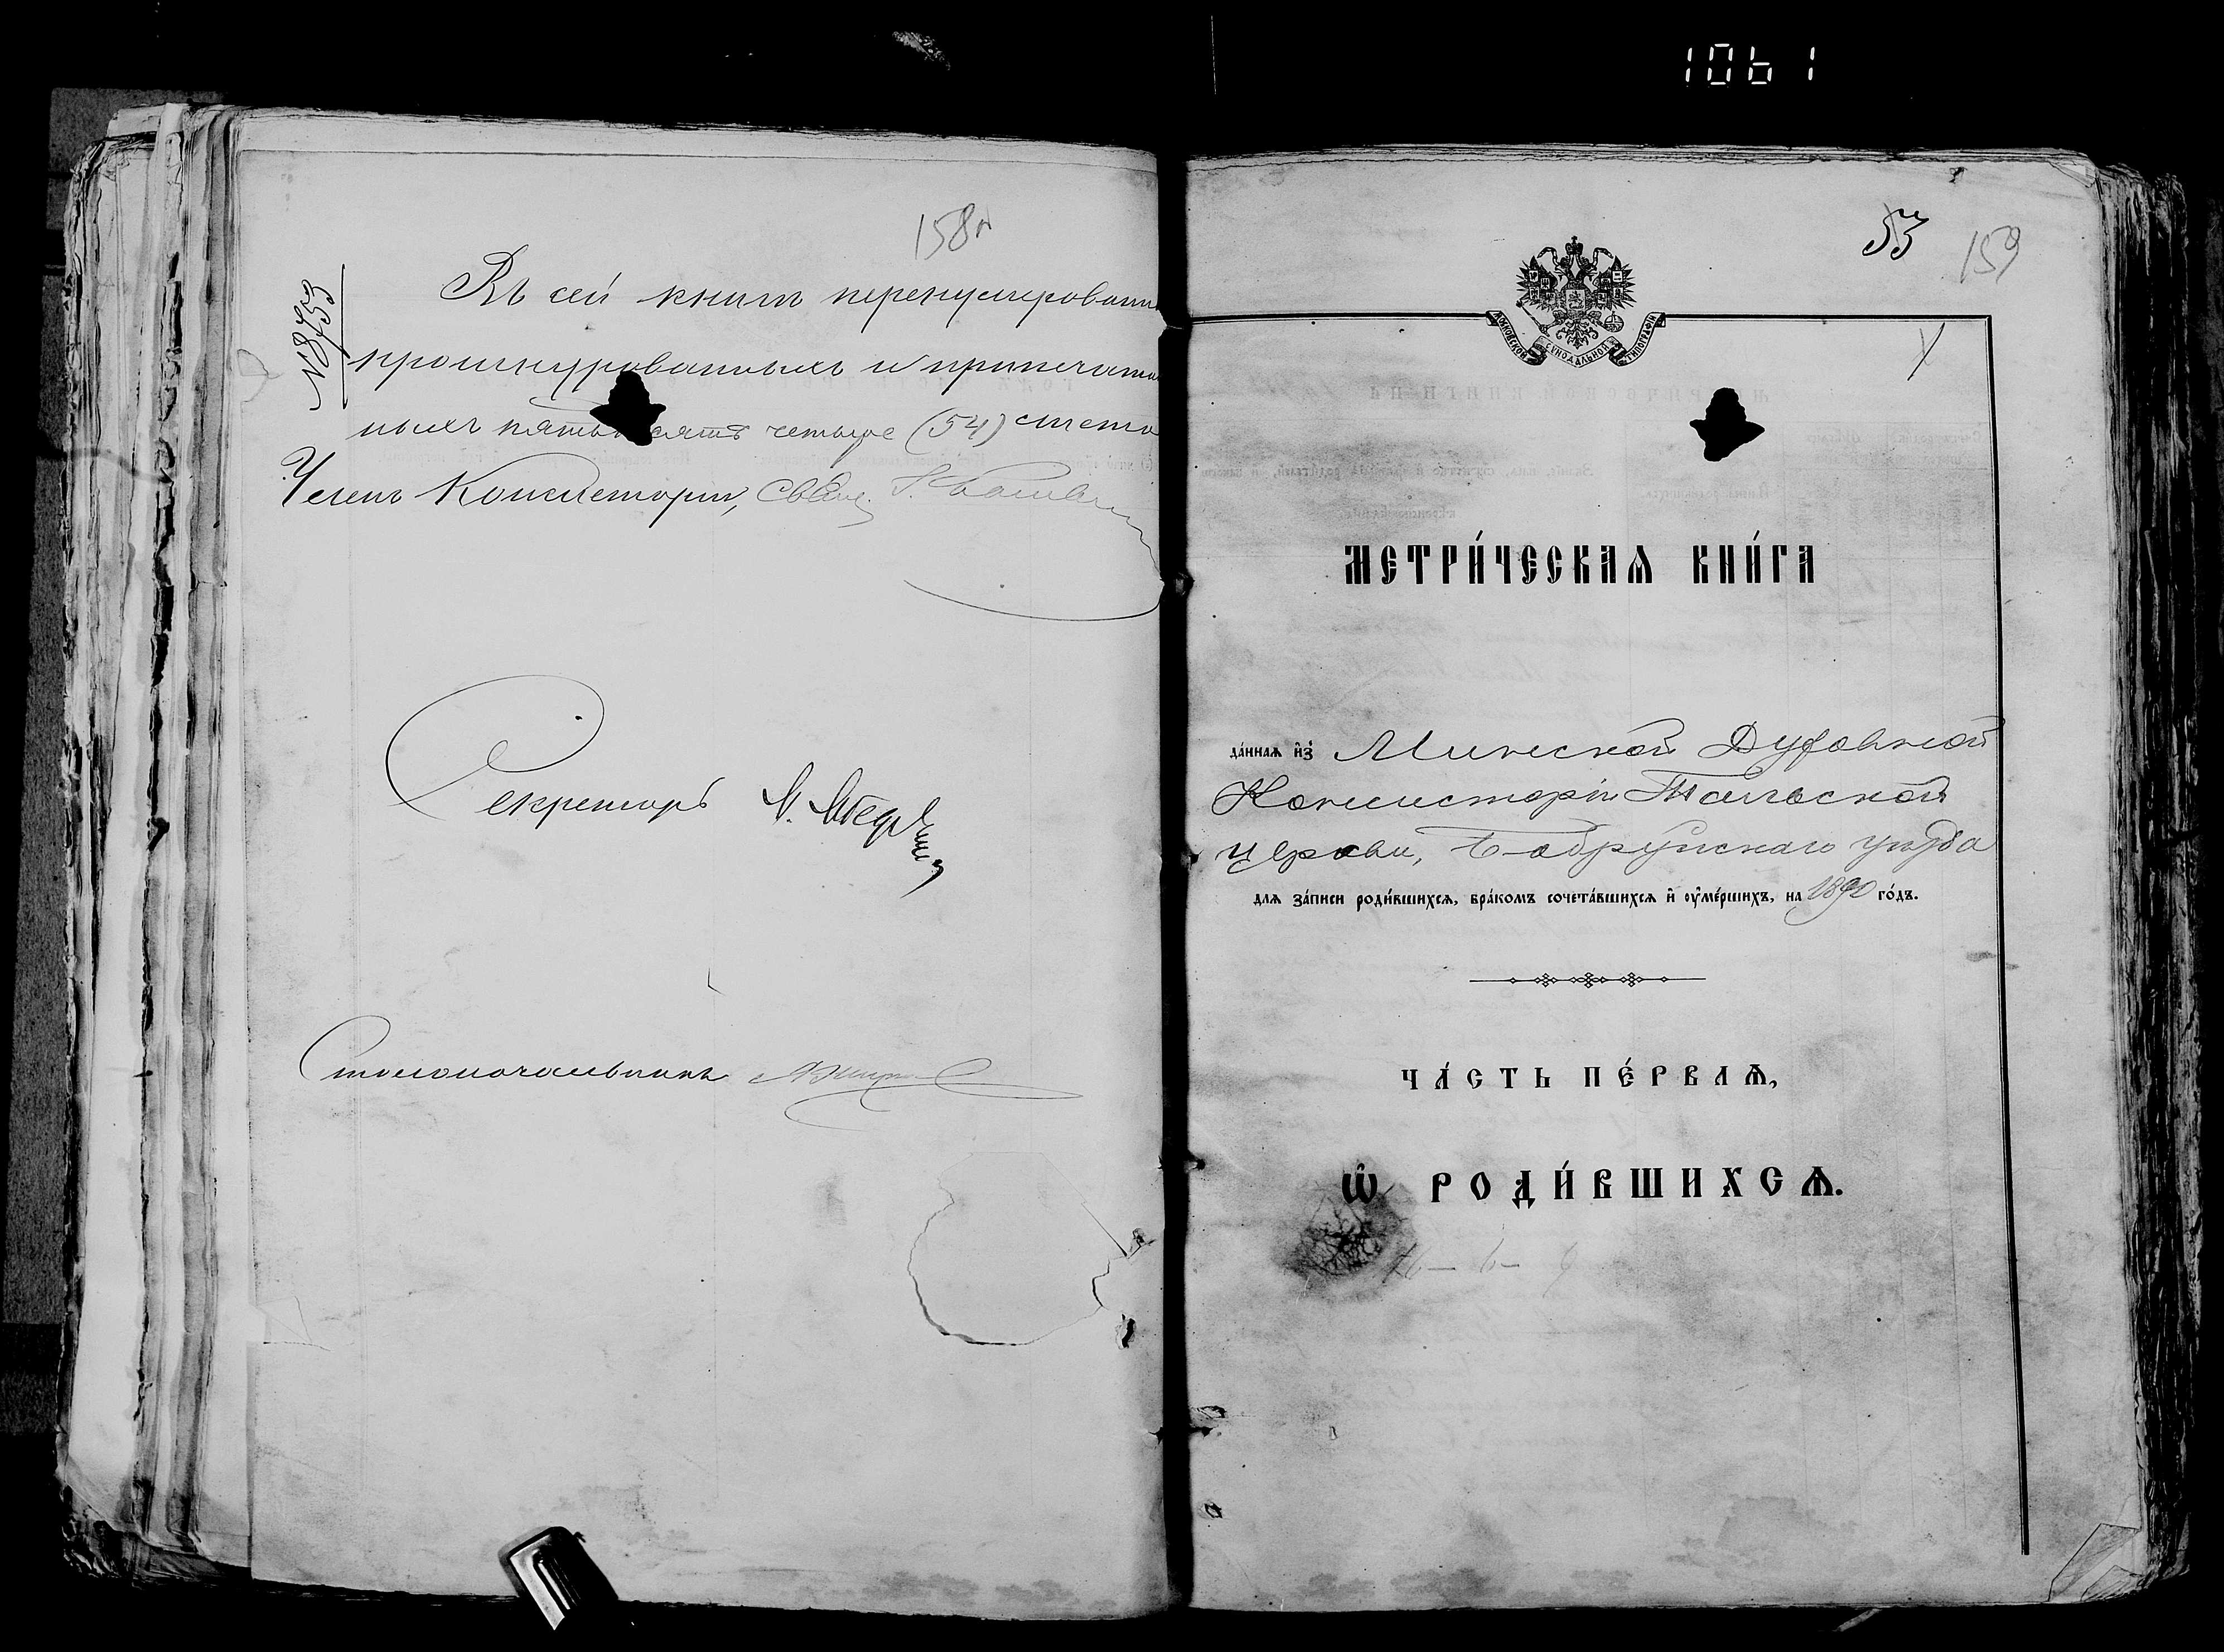 1061
158
№ 8753
Въ сей книгѣ перенумерованн
прошнурованныхъ и припечатан
ныхъ пятьдесятъ четыре (54) листа
Членъ Консисторіи, Свящ.
Секретарь
Столоначальникъ
53 159
МОСКОВСКОЙ СѴНОДАЛЬНОЙ ТИПОГРАФІИ
МЕТРИ́ЧЕСКАѦ КНИ́ГА
да́ннаѧ и҆зъ Минской Духовной
Консисторіи Тальской
церкви, Бобруйскаго уѣзда
длѧ за́писи роди́вшихсѧ, бра́комъ сочета́вшихсѧ и҆ ᲂу҆ме́ршихъ, на 1890 го́дъ.
ЧА́СТЬ ПЕ́РВАѦ,
Ѽ РОДИ́ВШИХСѦ.